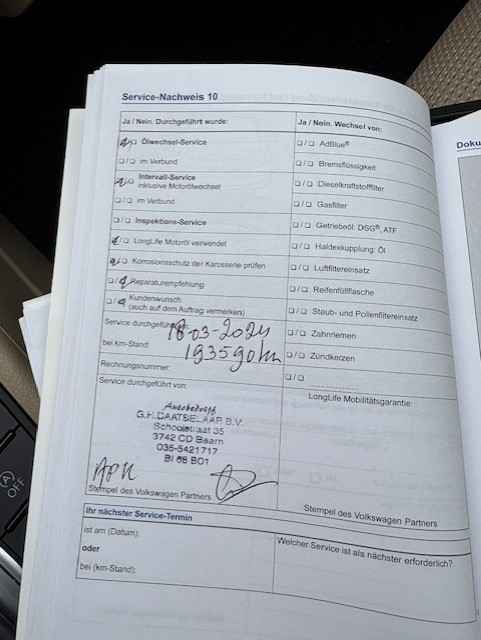 Service-Nachweis 10
Ja / Nein. Durchgeführt wurde:
Ölwechsel-Service
im Verbund
Intervall-Service
inklusive Motorölwechsel
im Verbund
Inspektions-Service
LongLife Motoröl verwendet
Korrosionsschutz der Karosserie prüfen
Reparaturempfehlung
Kundenwunsch
(auch auf dem Auftrag vermerken)
Service durchgeführt 18-03-2024
bei km-Stand: 193590 km
Rechnungsnummer:
Service durchgeführt von:
Autobedrijf
G.H. DAATSELAAR B.V.
Schoolstraat 35
3742 CD Baarn
035-5421717
APK
Stempel des Volkswagen Partners
Ja / Nein. Wechsel von:
AdBlue®
Bremsflüssigkeit
Dieselkraftstofffilter
Gasfilter
Getriebeöl: DSG®, ATF
Haldexkupplung: Öl
Luftfiltereinsatz
Reifenfüllflasche
Staub- und Pollenfiltereinsatz
Zahnriemen
Zündkerzen
LongLife Mobilitätsgarantie:
Stempel des Volkswagen Partners
Ihr nächster Service-Termin
ist am (Datum):
oder
bei (km-Stand):
Welcher Service ist als nächster erforderlich?
Doku
OFF